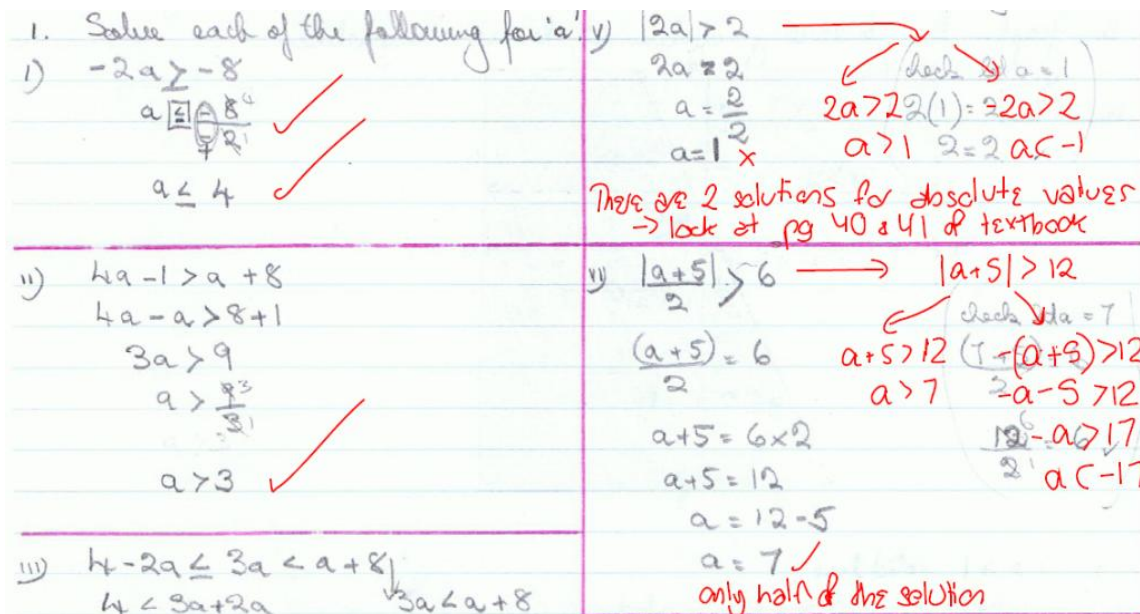 1. Solve each of the following for 'a'.
i) -2a ≥ -8
a ≤ -8/-2
a ≤ 4
ii) 4a - 1 > a + 8
4a - a > 8 + 1
3a > 9
a > 9/3
a > 3
iii) 4 - 2a ≤ 3a < a + 8
4 < 3a + 2a
3a < a + 8
v) |2a| > 2
2a = 2
check let a = 1
a = 2/2
2a > 2
2(1) = 2
-2a > 2
a = 1 x
a > 1
2 = 2
a < -1
There are 2 solutions for absolute values
→ look at pg 40 & 41 of textbook
vi) |a+5|/2 > 6 → |a+5| > 12
check let a = 7
(a+5)/2 = 6
a+5 > 12
-(a+5) > 12
a > 7
-a-5 > 12
a+5 = 6×2
12/2 = 6
-a > 17
a+5 = 12
a < -17
a = 12-5
a = 7 ✓
only half of the solution